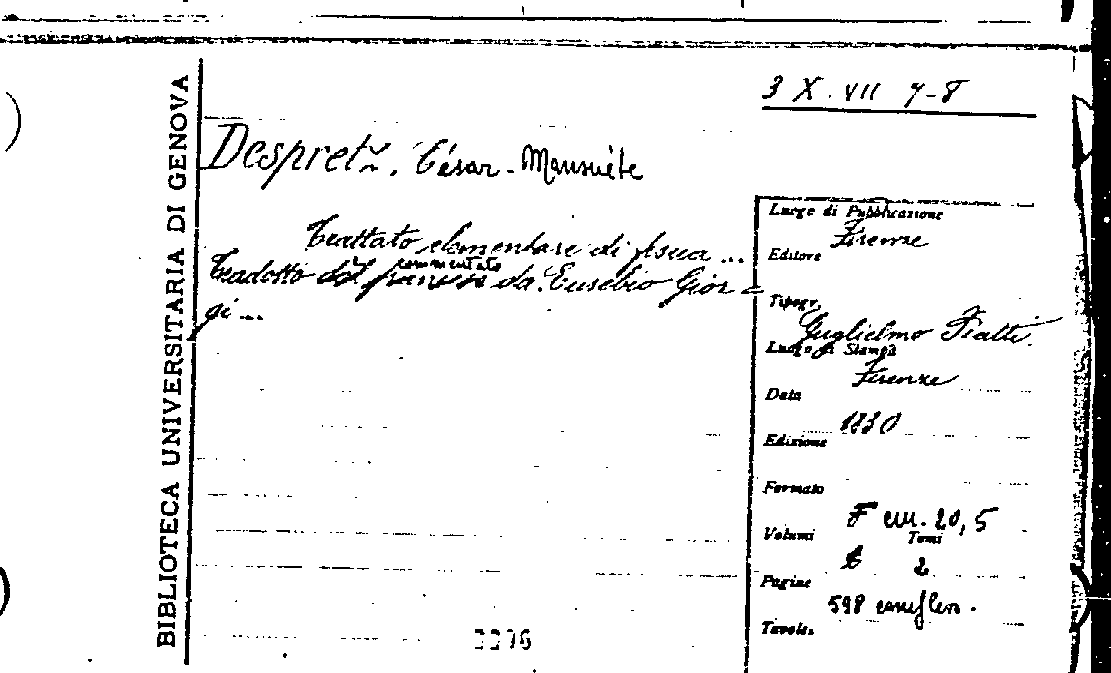 3 X. VII 7-8
BIBLIOTECA UNIVERSITARIA DI GENOVA
Despretz. César-Mansuète
Trattato elementare di fisica ...
commentato
Tradotto dal francese da Eusebio Gior=
gi ...
Luogo di Pubblicazione
Firenze
Editore
Tipogr.
Guglielmo Piatti.
Luogo di Stampa
Firenze
Data
1830
Edizione
Formato
F cm. 20,5
Volumi Tomi
2
Pagine
598 compless.
Tavole.